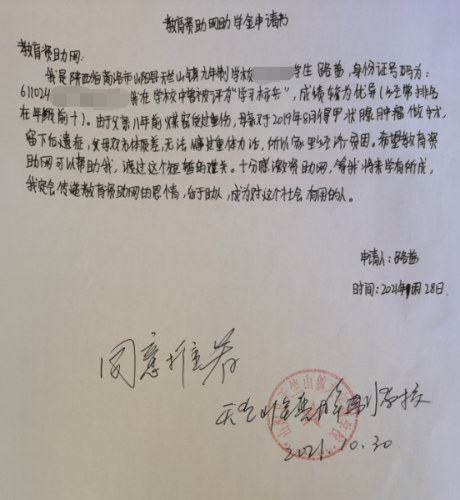 教育资助网助学金申请书
教育资助网：
我是陕西省商洛市山阳县天竺山镇九年制学校 学生 路茜，身份证号码为：
611024 我在学校中曾被评为“学习标兵”，成绩较为优异（经常排名
在年级前十）。由于父亲八年前煤窑受过重伤，母亲对于2019年8月得甲状腺肿瘤做手术，
留下后遗症，父母双方体质差，无法通过重体力活，所以家里经济穷困。希望教育资
助网可以帮助我，渡过这个短暂的难关。十分感激资助网，等我将来学有所成，
我定会传递教育资助网的恩情，会于助人，成为对这个社会有用的人。
申请人：路茜
时间：2021年 月28日
同意推荐
天竺山镇 九年制学校
2021.10.30